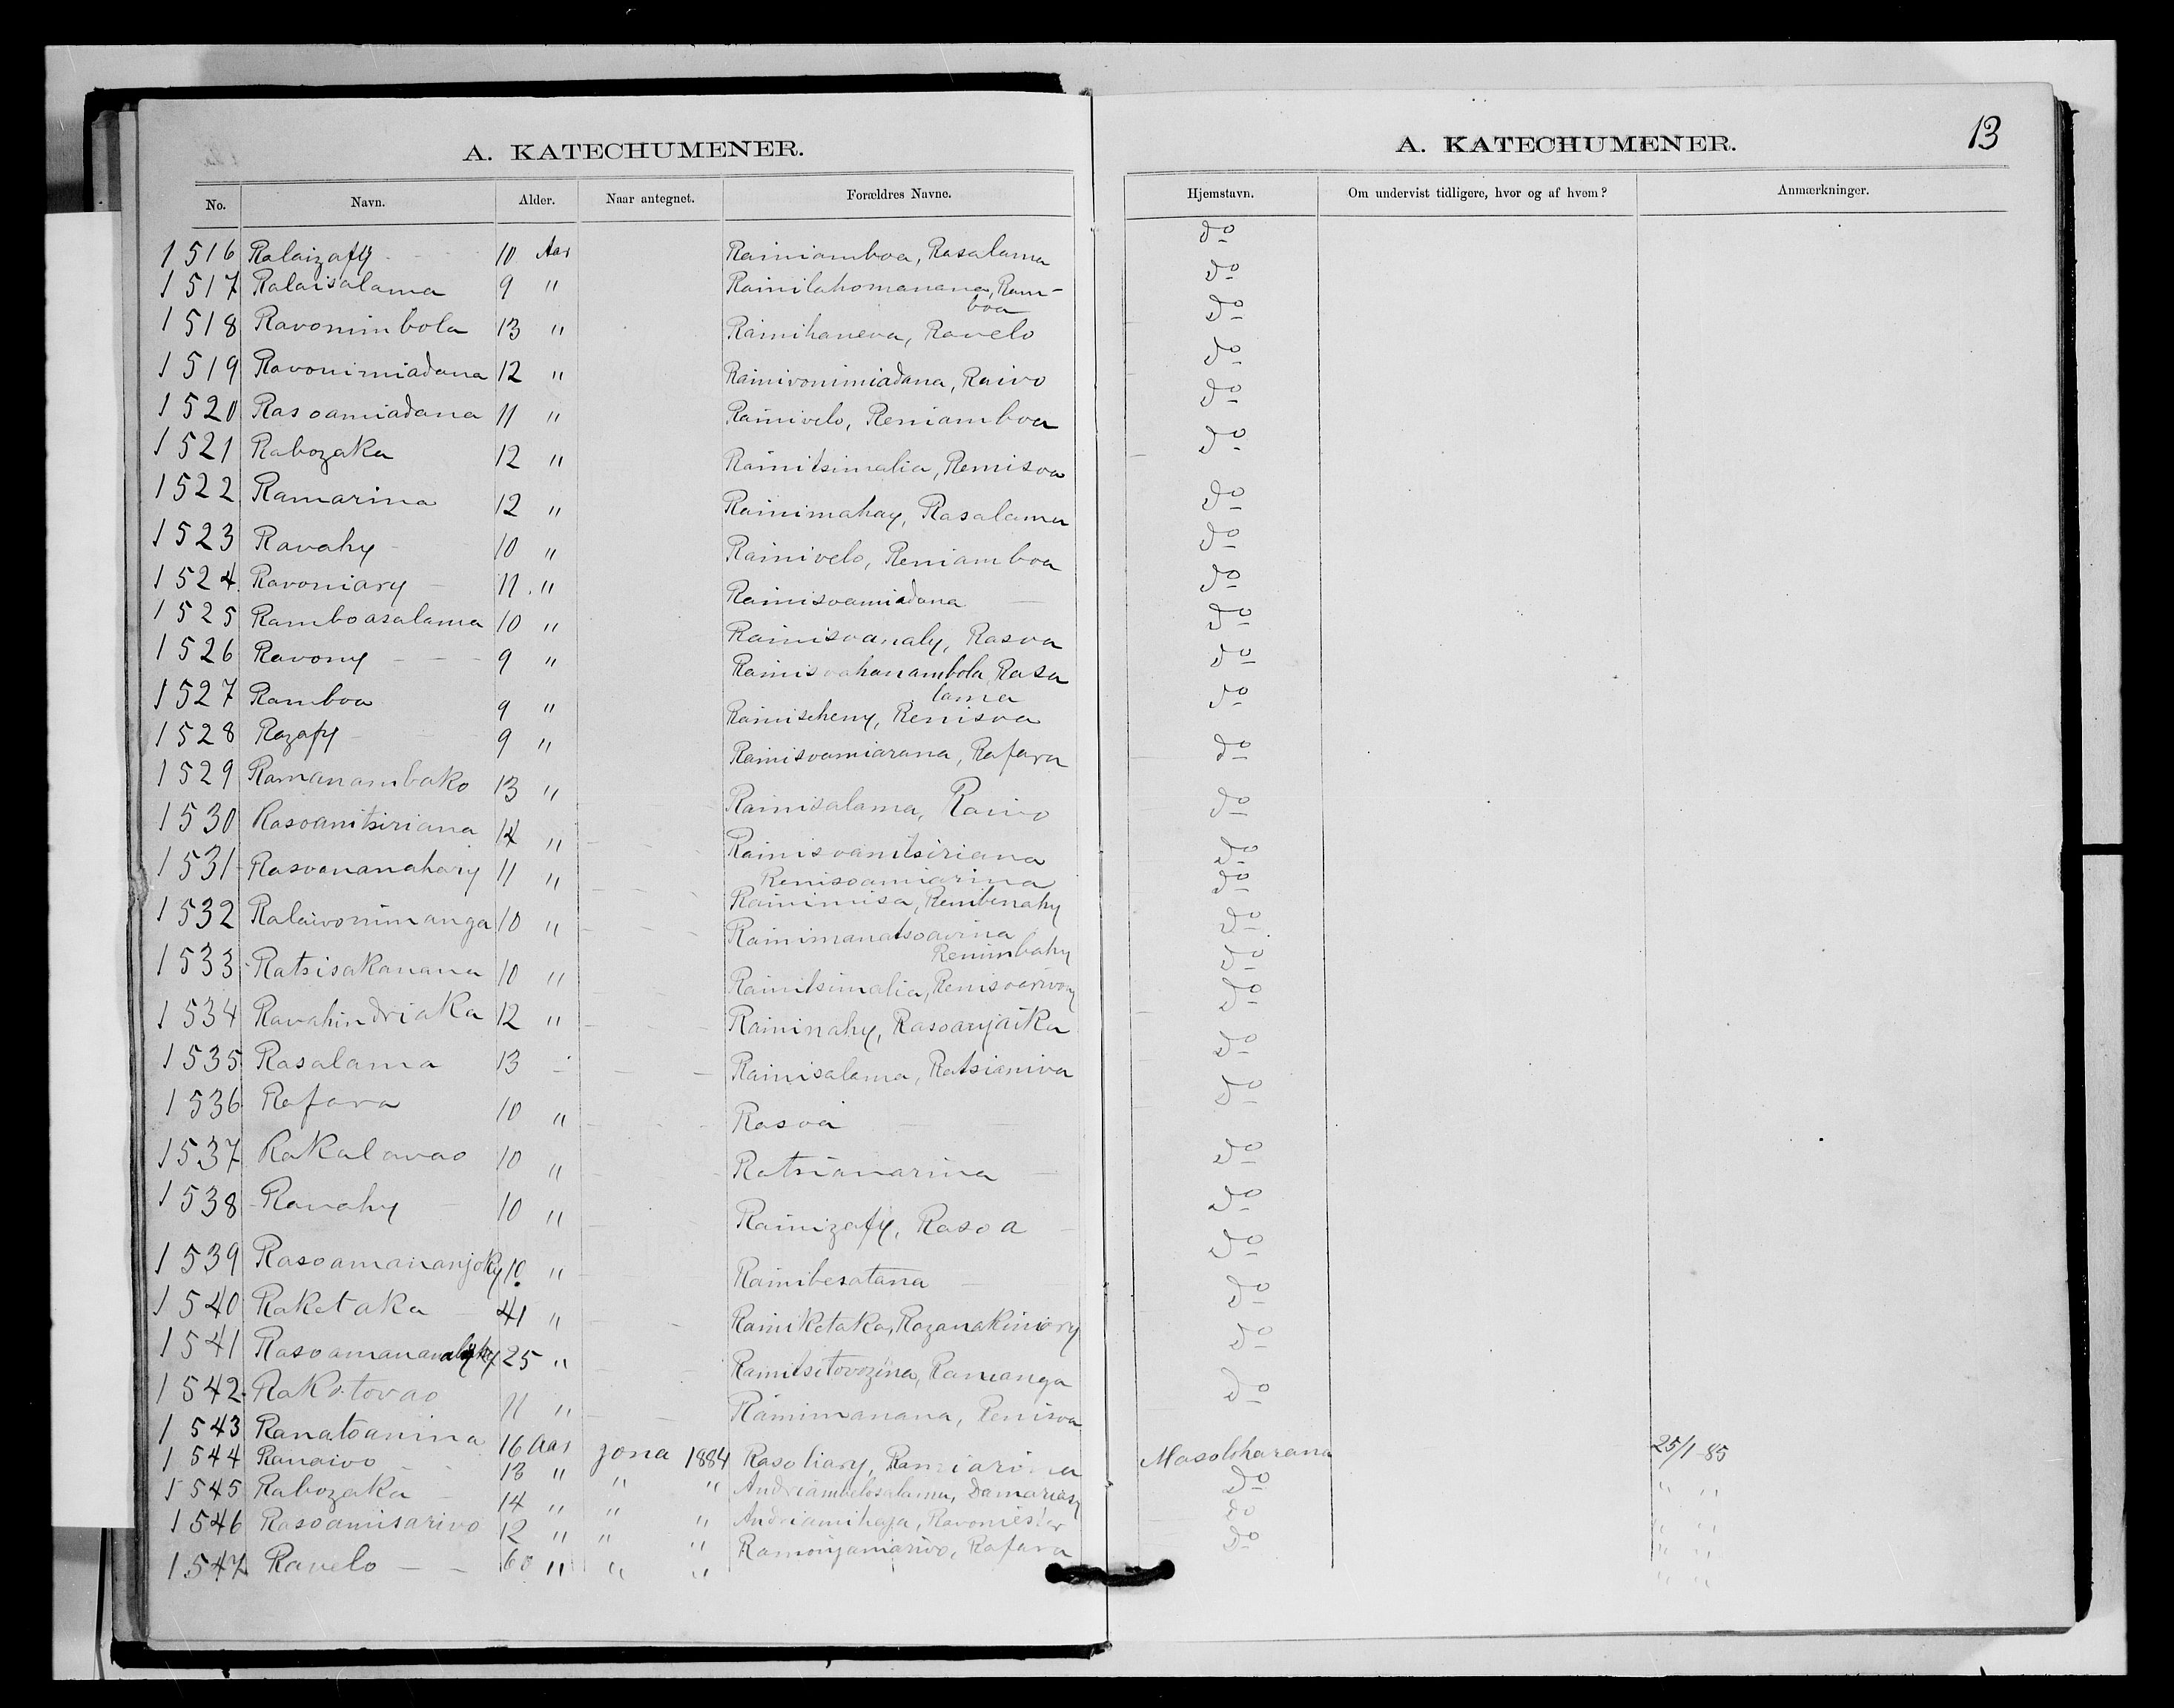 13
A. KATECHUMENER. A. KATECHUMENER.
No. Navn. Alder. Naar antegnet. Forældres Navne. Hjemstavn. Om undervist tidligere, hvor og af hvem? Anmærkninger.
1516 Ralaizafy 10 Aar Rainiamboa, Rasalama do
1517 Ralaisalama 9 " Rainilahomanana, Ram-
boa do
1518 Ravonimbola 13 " Rainihaneva, Ravelo do
1519 Ravonimiadana 12 " Rainivonimiadana, Raivo do
1520 Rasoamiadana 11 " Rainivelo, Reniamboa do
1521 Rabozaka 12 " Rainitsimalia, Renisoa do
1522 Ramarina 12 " Rainimahay, Rasalama do
1523 Ravahy 10 " Rainivelo, Reniamboa do
1524 Ravoniary 11 " Rainisoamiadana do
1525 Ramboasalama 10 " Rainisoanaly, Rasoa do
1526 Ravony 9 " Rainisoahanambola, Rasa
lama do
1527 Ramboa 9 " Rainiseheny, Renisoa do
1528 Razafy 9 " Rainisoamiarana, Rafara do
1529 Ramanambako 13 " Rainisalama, Raivo do
1530 Rasoanitsiriana 14 " Rainisoanitsiriana
Renisoamiarina do
1531 Rasoananahary 11 " Rainimisa, Renibenahy do
1532 Ralaivonimanga 10 " Rainimanatsoavina
Renimbahy do
1533 Ratsisakanana 10 " Rainitsimalia, Renisoarivony do
1534 Ravahindriaka 12 " Raininahy, Rasoanjaika do
1535 Rasalama 13 Rainisalama, Ratsianiva do
1536 Rafara 10 " Rasoa do
1537 Rakalavao 10 " Ratsianarina do
1538 Ravahy 10 " Rainizafy, Rasoa do
1539 Rasoamananjoky 10 " Rainibesatana do
1540 Raketaka 41 " Rainiketaka, Razanakiniary do
1541 25 " Rainitsitovozina, Ramanga do
1542 Rakotovao 11 " Rainimanana, Renisoa do
1543 Ranatoanina 16 Aar Jona 1884 Rasoliary, Ramiarina Masobharana 25/1-85
1544 Ranaivo 13 " " " Andriambelosalama, Damariasy Do " "
1545 Rabozaka 14 " " " Andriamihaja, Ravoniester do " "
1546 Rasoamisarivo 12 " " " Ramonjaniarivo, Rafara Do " "
1547 Ravelo 60 " " " " "